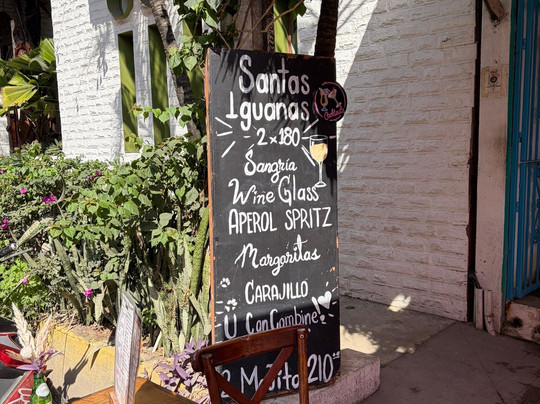 Santas
Iguanas
2x180
Sangría
Wine Glass
APEROL SPRITZ
Margaritas
CARAJILLO
U Can Combine
2 Mojito 210